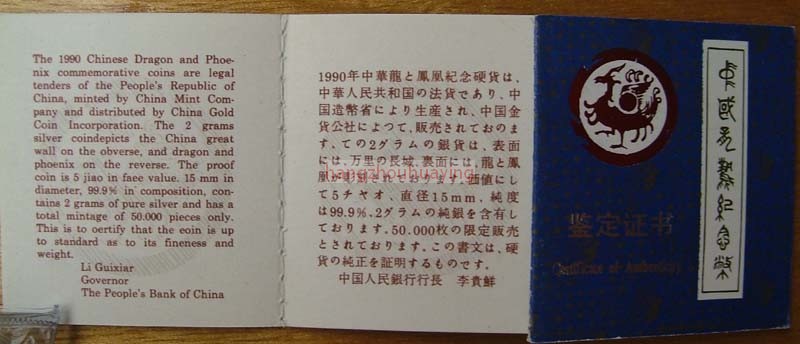 The 1990 Chinese Dragon and Phoe-
nix commemorative coins are legal
tenders of the People's Republic of
China, minted by China Mint Com-
pany and distributed by China Gold
Coin Incorporation. The 2 grams
silver coindepicts the China great
wall on the obverse, and dragon and
phoenix on the reverse. The proof
coin is 5 jiao in faee value. 15 mm in
diameter, 99.9% in composition, con-
tains 2 grams of pure silver and has a
total mintage of 50.000 pieces only.
This is to oertify that the coin is up
to standard as to its fineness and
weight.
Li Guixiar
Governor
The People's Bank of China
1990年中華龍と鳳凰紀念硬貨は、
中華人民共和国の法貨であり、中
国造幣省により生産され、中国金
貨公社によつて、販売されておのま
す、ての2グラムの銀貨は、表面
には、万里の長城、裏面には、龍と鳳
凰が彫刻されております。価値にし
て5チャオ、直径15mm、純度
は99.9%、2グラムの純銀を含有し
ております。50.000枚の限定販売
とされております。この書文は、硬
貨の純正を証明するものです。
中国人民銀行行長 李貴鮮
hangzhouhuaying
鉴定证书
Certificate of Authenticity
中國
紀念幣